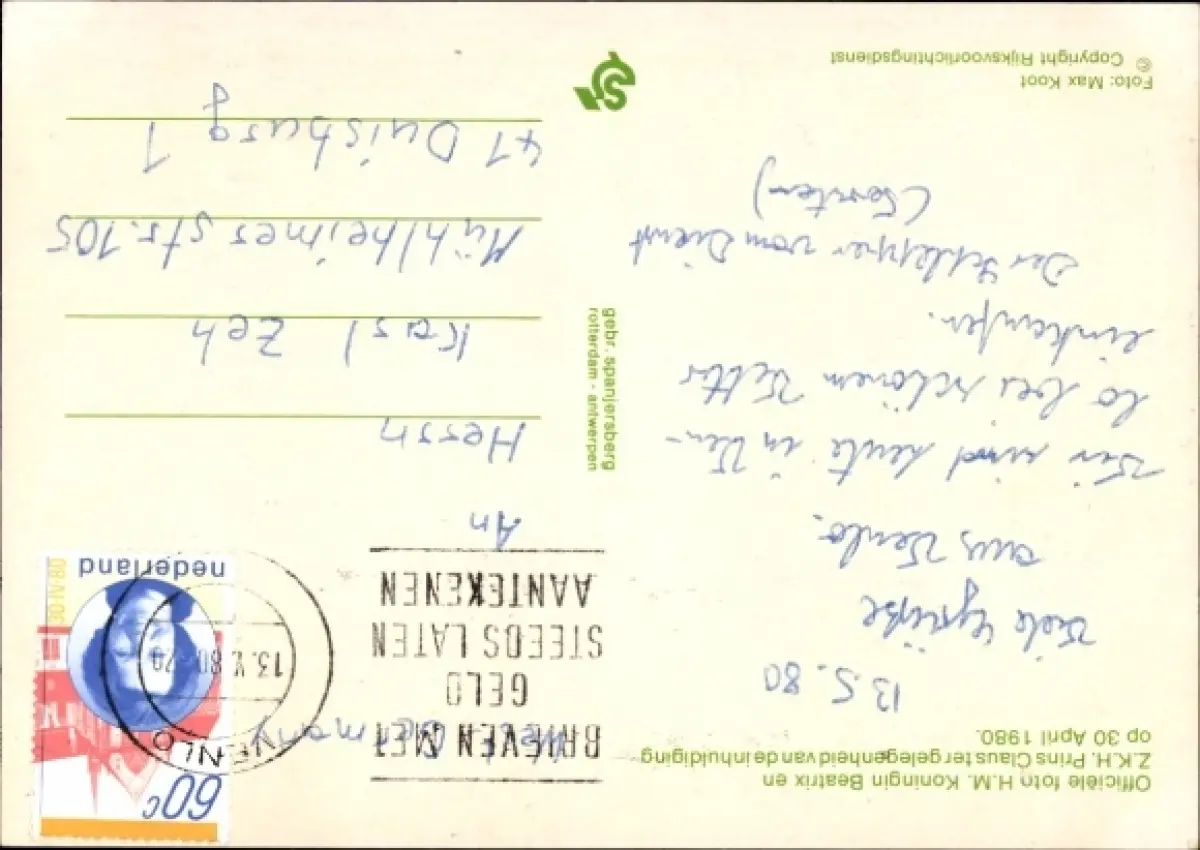 Officiële foto H.M. Koningin Beatrix en
Z.K.H. Prins Claus ter gelegenheid van de inhuldiging
op 30 April 1980.
13.5.80
Viele Grüße
aus Venlo.
Wir sind heute in Ven-
lo bei schönem Wetter
einkaufen.
Der Schlepper vom Dienst
Foto: Max Koot
© Copyright Rijksvoorlichtingsdienst
gebr. spanjersberg
rotterdam - antwerpen
60c
nederland
30·IV·80
VENLO
13.V.80
BRIEVEN MET
GELD
STEEDS LATEN
AANTEKENEN
West Germany
An
Herrn
Karl Zeh
Mühlheimer str. 105
41 Duisburg 1